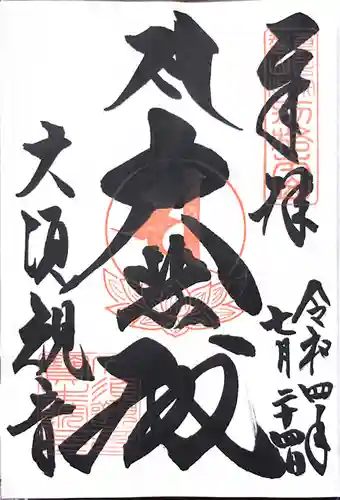 奉拝
令和四年
七月二十四日
大悲殿
大須観音